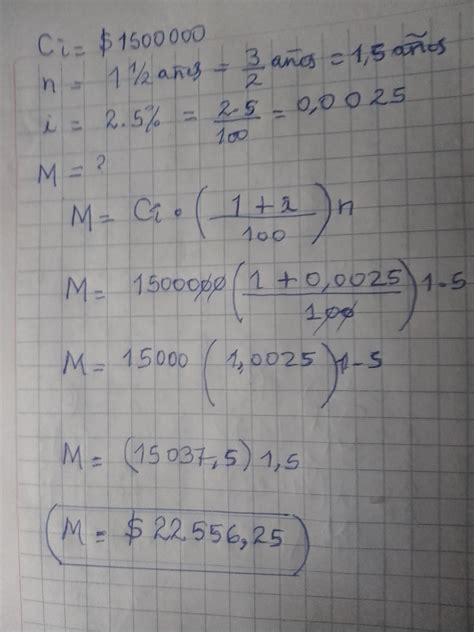 Ci = $1500000
n = 1 1/2 años = 3/2 años = 1,5 años
i = 2.5% = 2.5/100 = 0,0025
M = ?
M = Ci • (1 + i / 100) n
M = 1500000 (1 + 0,0025 / 100) 1.5
M = 15000 (1,0025) 1.5
M = (15037,5) 1,5
M = $ 22556,25